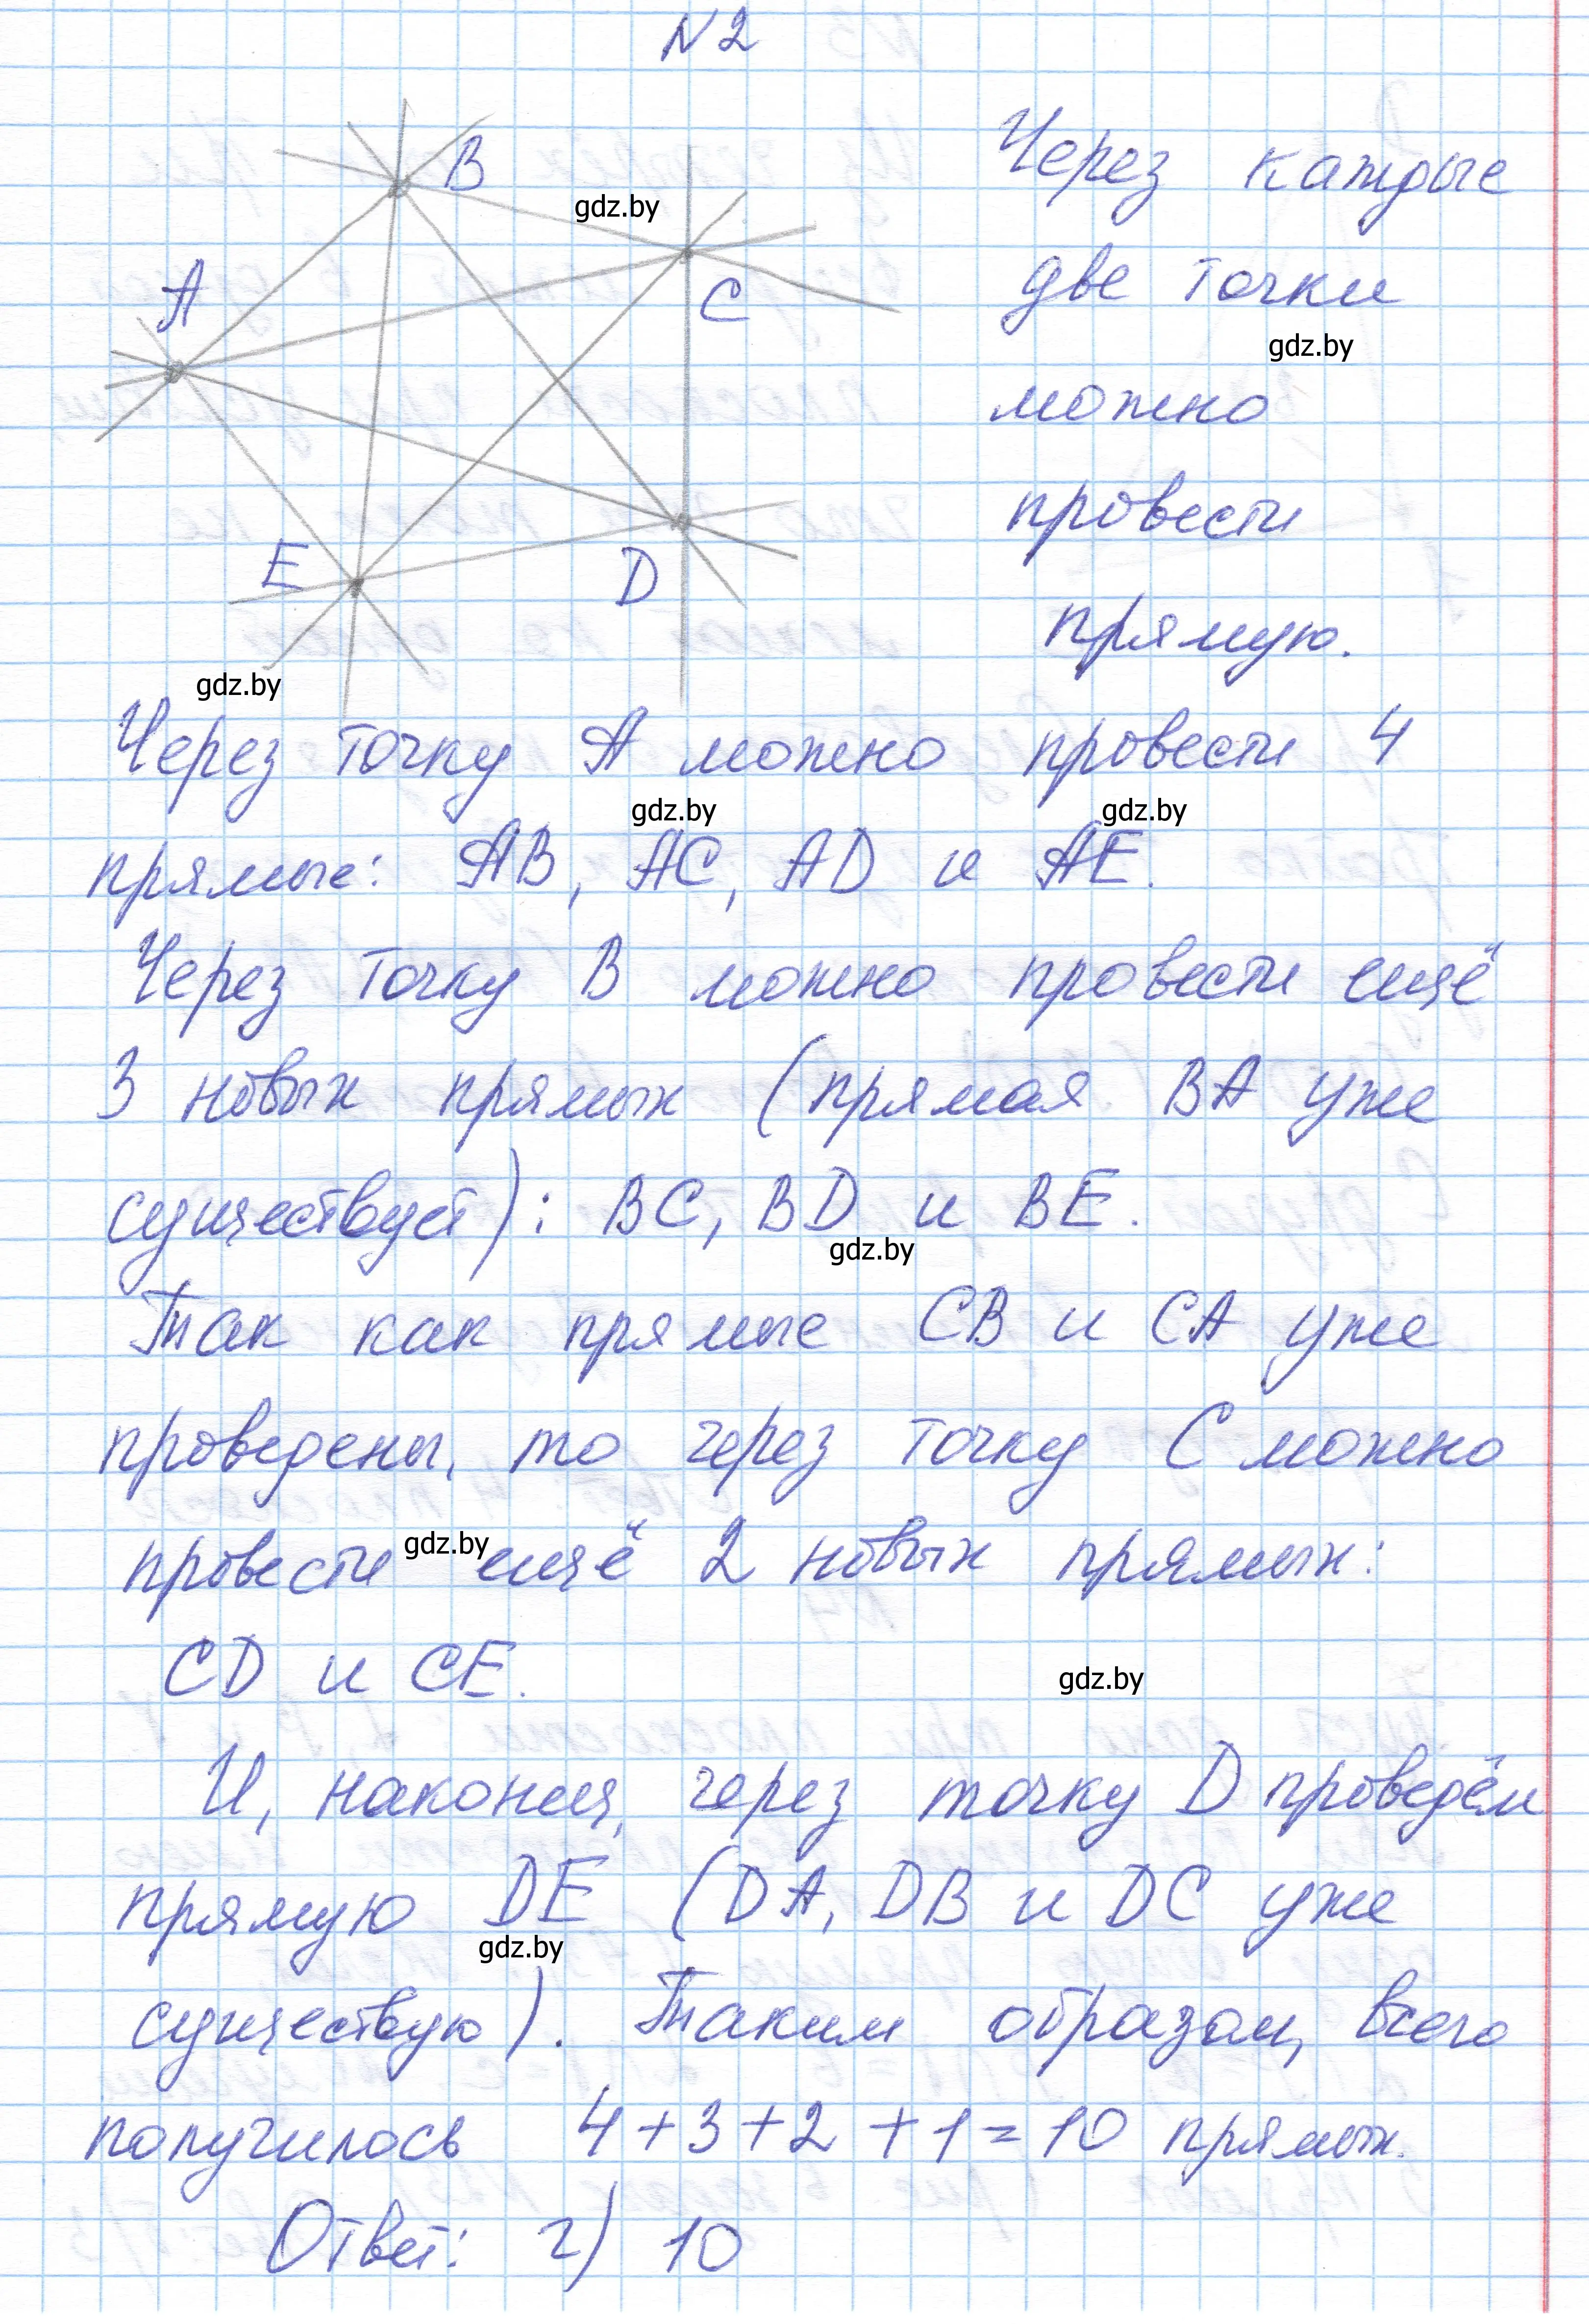 N 2
B
gdz.by
A
C
E
D
gdz.by
Через каждые
две точки
gdz.by
можно
провести
прямую.
Через точку А можно провести 4
gdz.by gdz.by
прямые: АВ, АС, AD и АЕ.
Через точку В можно провести ещё
3 новых прямых (прямая ВА уже
существует): ВС, BD и ВЕ.
gdz.by
Так как прямые СВ и СА уже
проведены, то через точку С можно
провести ещё 2 новых прямых:
gdz.by
CD и СЕ.
gdz.by
И, наконец, через точку D проведём
прямую DE (DA, DB и DC уже
gdz.by
существую). Таким образом, всего
получилось 4+3+2+1=10 прямых.
Ответ: г) 10